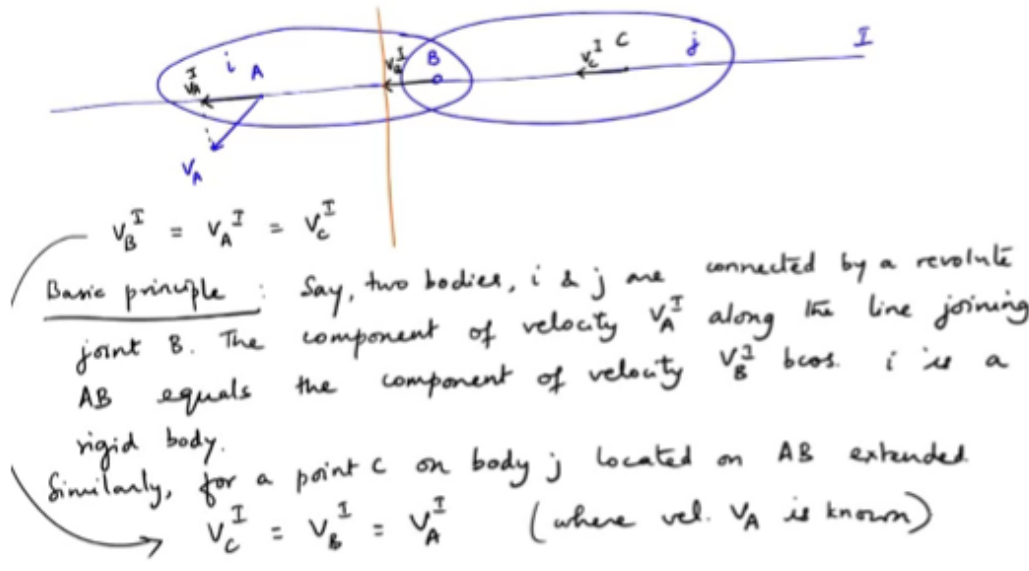 i A B C j I
V_A^I V_B^I V_C^I
V_A
V_B^I = V_A^I = V_C^I
Basic principle : Say, two bodies, i & j are connected by a revolute
joint B. The component of velocity V_A^I along the line joining
AB equals the component of velocity V_B^I bcos. i is a
rigid body.
Similarly, for a point C on body j located on AB extended
V_C^I = V_B^I = V_A^I (where vel. V_A is known)